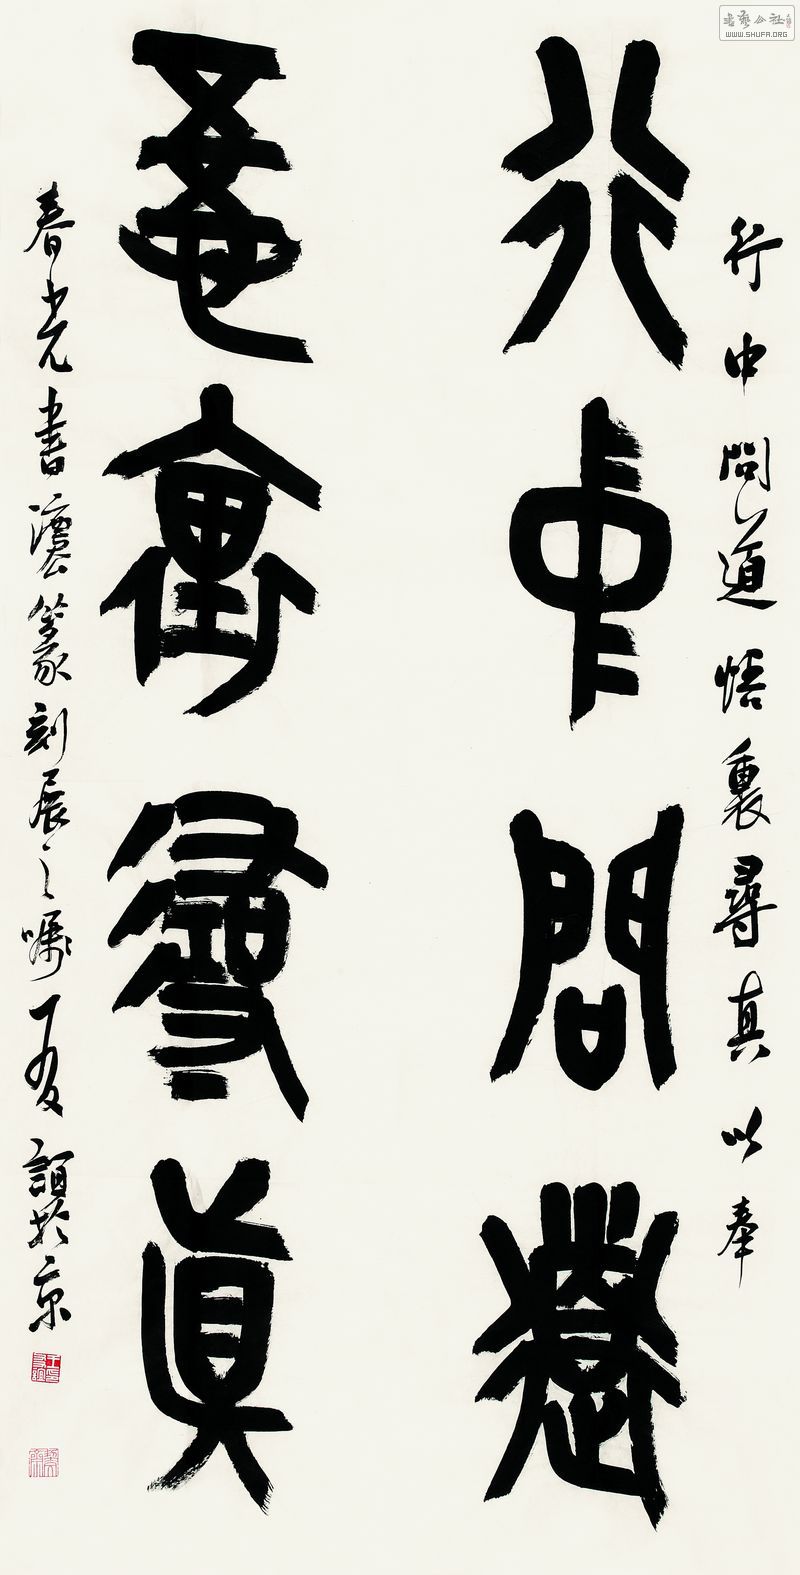 行中問道
悟裏尋真
行中問道悟裏尋真以奉
春光書法篆刻展之嘱
於京
书艺公社
WWW.SHUFA.ORG